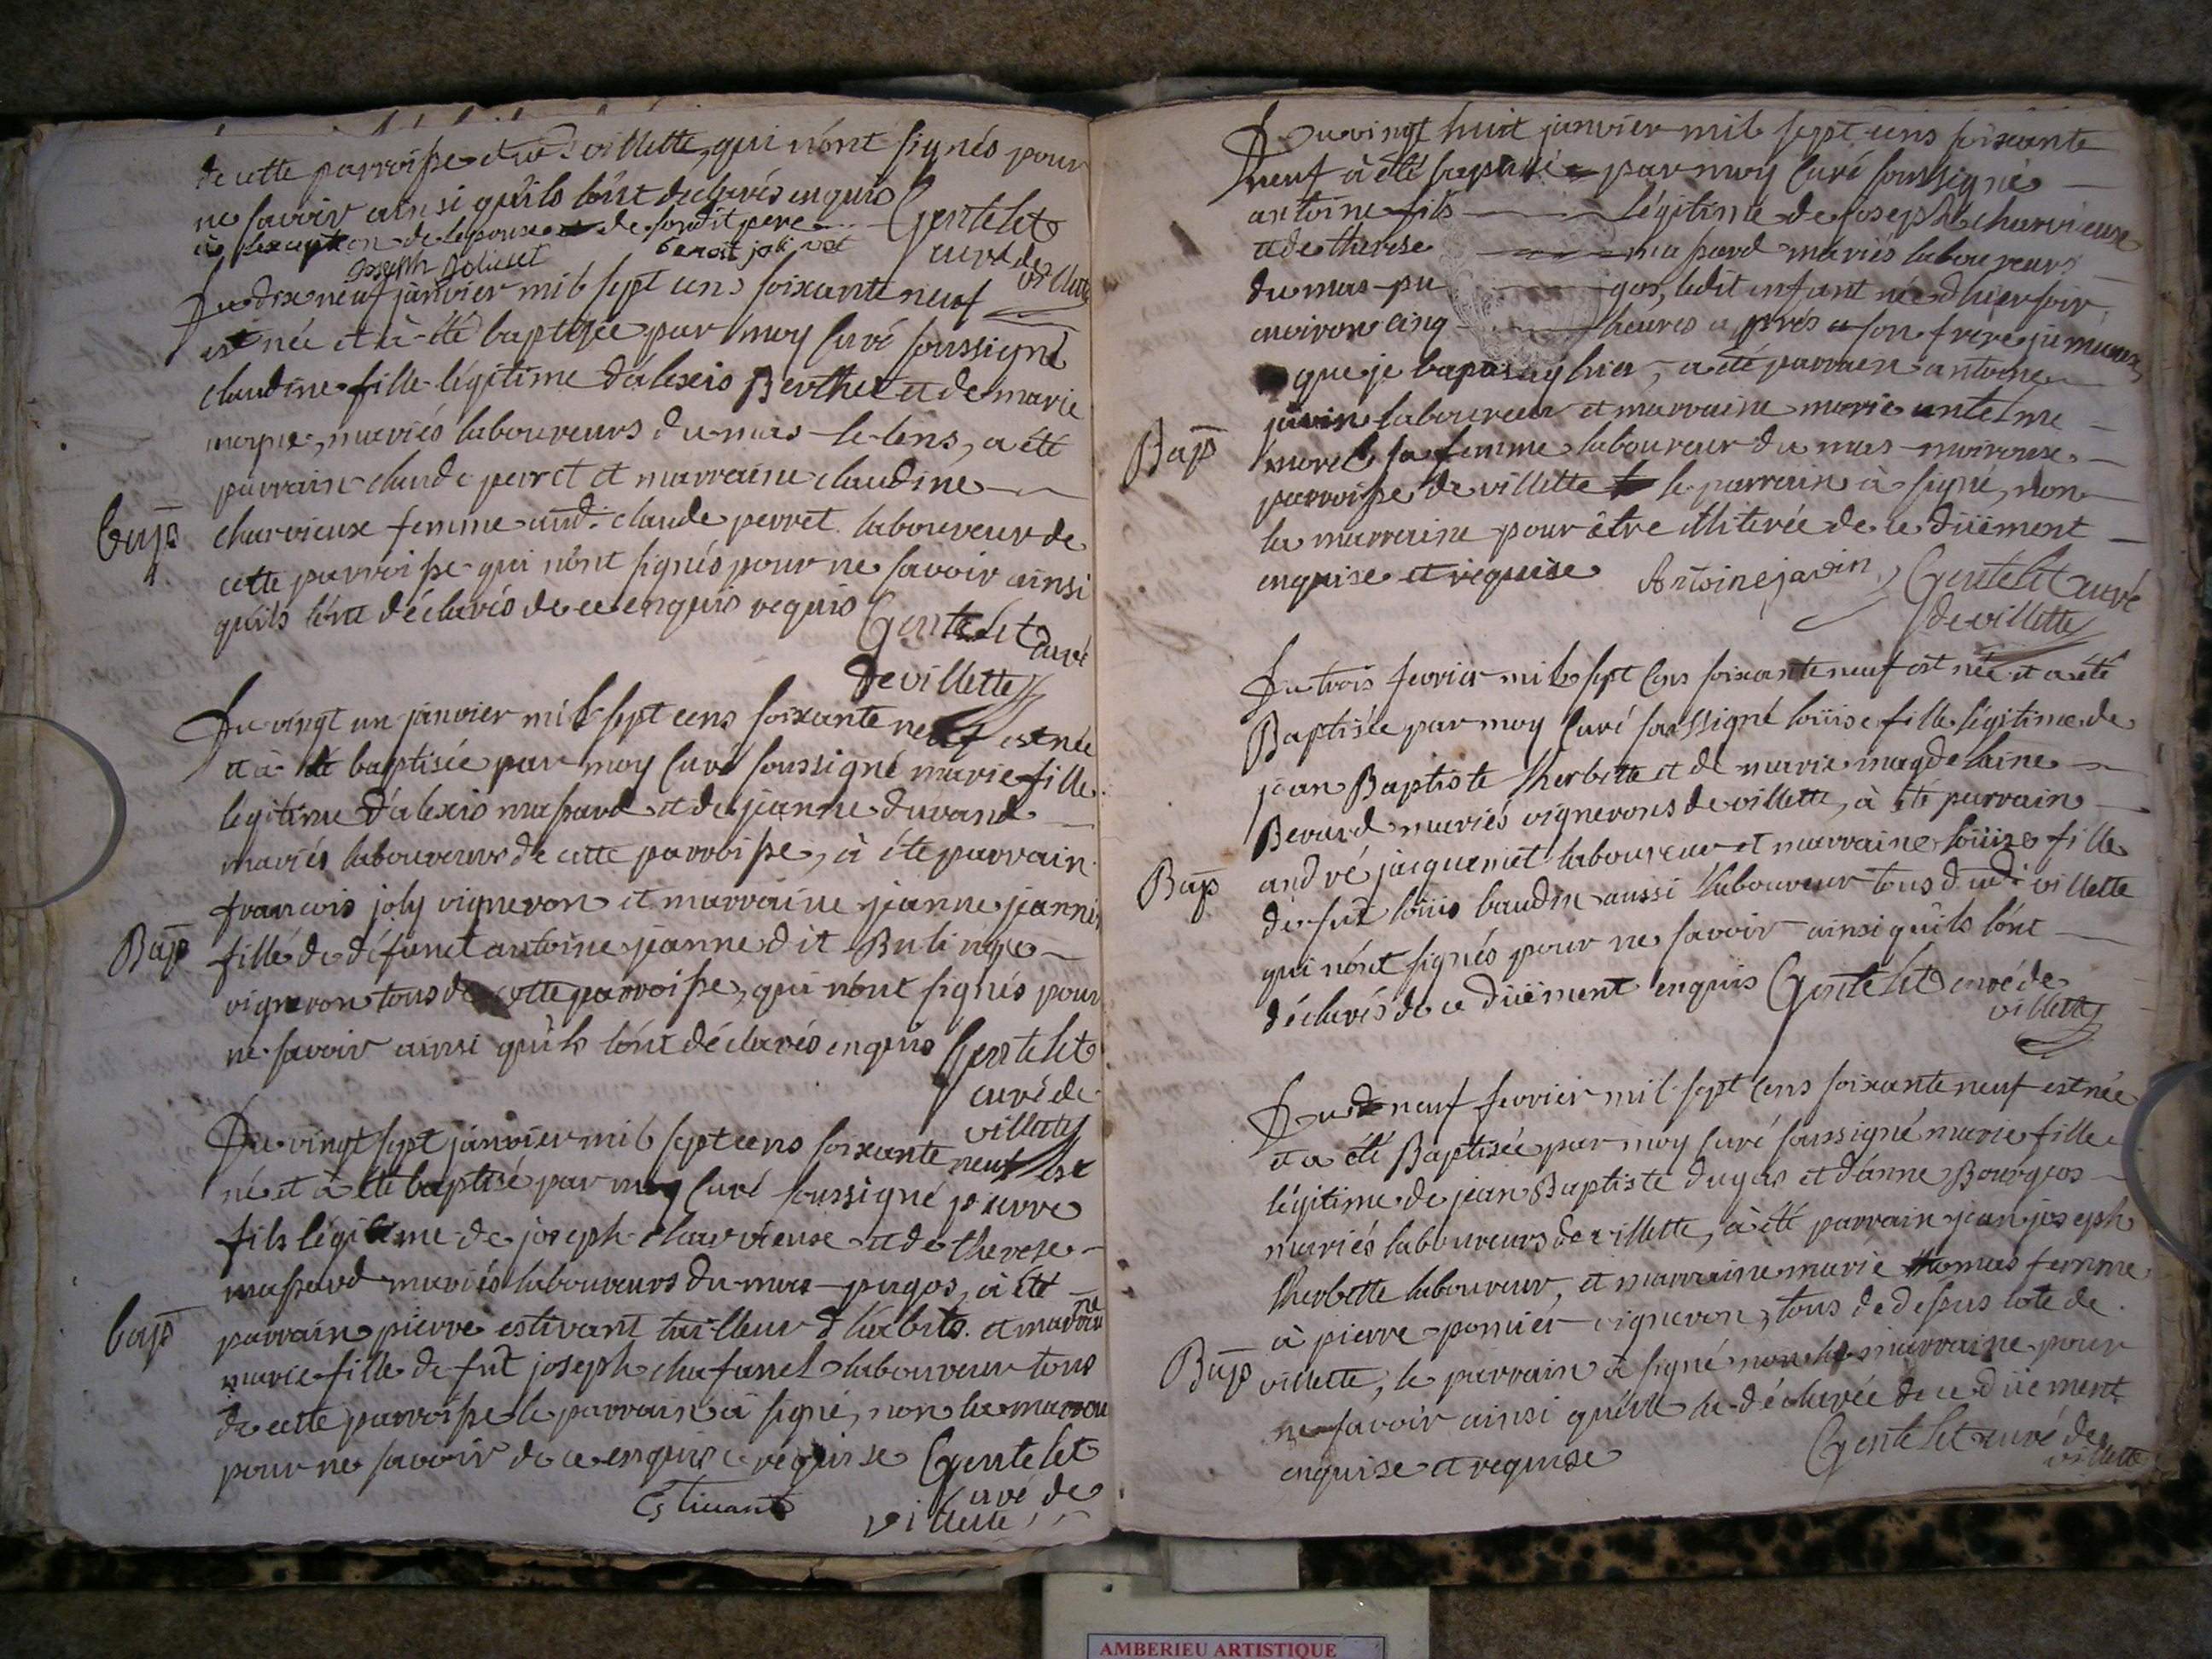 de cette parroisse et de villette, qui n'ont signés pour
ne savoir ainsi qu'ils l'ont declarés enquis
à l'exception de l'epouse et de son dit pere Gentelet
joseph benoit joli curé de
villette
Du dix neuf janvier mil sept cens soixante neuf
est née et à été baptisée par moy Curé soussigné
claudine fille légitime d'alexis Berthet et de marie
mariés laboureurs du mas le lens, a été
parrain claude perret et marraine claudine
Bap
charvieux femme aud. claude perret laboureur de
cette parroisse qui n'ont signés pour ne savoir ainsi
qu'ils l'ont déclarés de ce enquis requis Gentelet curé
de villette
Du vingt un janvier mil sept cens soixante neuf est née
et à été baptisée par moy Curé soussigné marie fille
legitime d'alexis massard et de jeanne durand
mariés laboureurs de cette parroisse, à été parrain
francois joly vigneron et marraine jeanne
Bap
fille de défunct antoine jeanne dit
vigneron tous de cette parroisse, qui n'ont signés pour
ne savoir ainsi qu'ils l'ont déclarés enquis Gentelet
curé de
villette
Du vingt sept janvier mil sept cens soixante neuf est
né et à été baptisé par moy Curé soussigné pierre
fils légitime de joseph charvieux et de therese
massard mariés laboureurs du mas pugos, à été
Bap
parrain pierre estivant tailleur d'habits et marraine
marie fille de fut joseph chafanel laboureur tous
de cette parroisse le parrain à signé, non la marraine
pour ne savoir de ce enquise requise Gentelet
Estivant curé de
villette
Du vingt huit janvier mil sept cens soixante
neuf à été baptisé par moy Curé soussigné
antoine fils légitime de joseph charvieux
et de therese massard mariés laboureurs
du mas pu gos, ledit enfant né d'hier soir
environ cinq heures après son frere jumeau
que je baptisay hier, a été parrain antoine
javin laboureur et marraine marie antelme
Bap
morel sa femme laboureur du mas
parroisse de villette le parrain à signé, non
la marraine pour être illiterée de ce düement
enquise et requise Antoine javin Gentelet curé
de villette
Du trois fevrier mil sept Cens soixante neuf est née et a été
Baptisée par moy Curé soussigné loüise fille légitime de
jean Baptiste therbette et de marie magdelaine
Berard mariés vignerons de villette, à été parrain
Bap
andré jacquemet laboureur et marraine loüise fille
de fût loüis baudin aussi laboureur tous dudi villette
qui n'ont signés pour ne savoir ainsi qu'ils l'ont
déclarés de ce düement enquis Gentelet curé de
villette
Du neuf fevrier mil sept Cens soixante neuf est née
et a été Baptisée par moy Curé soussigné marie fille
légitime de jean Baptiste dugas et d'anne Bourgeos
mariés laboureurs de villette, à été parrain jean joseph
therbette laboureur, et marraine marie thomas femme
à pierre pomier vigneron, tous de dessus
Bap
villette, le parrain à signé non la marraine pour
ne savoir ainsi quélle la déclarée de ce düement
enquise et requise Gentelet curé de
villette
AMBERIEU ARTISTIQUE